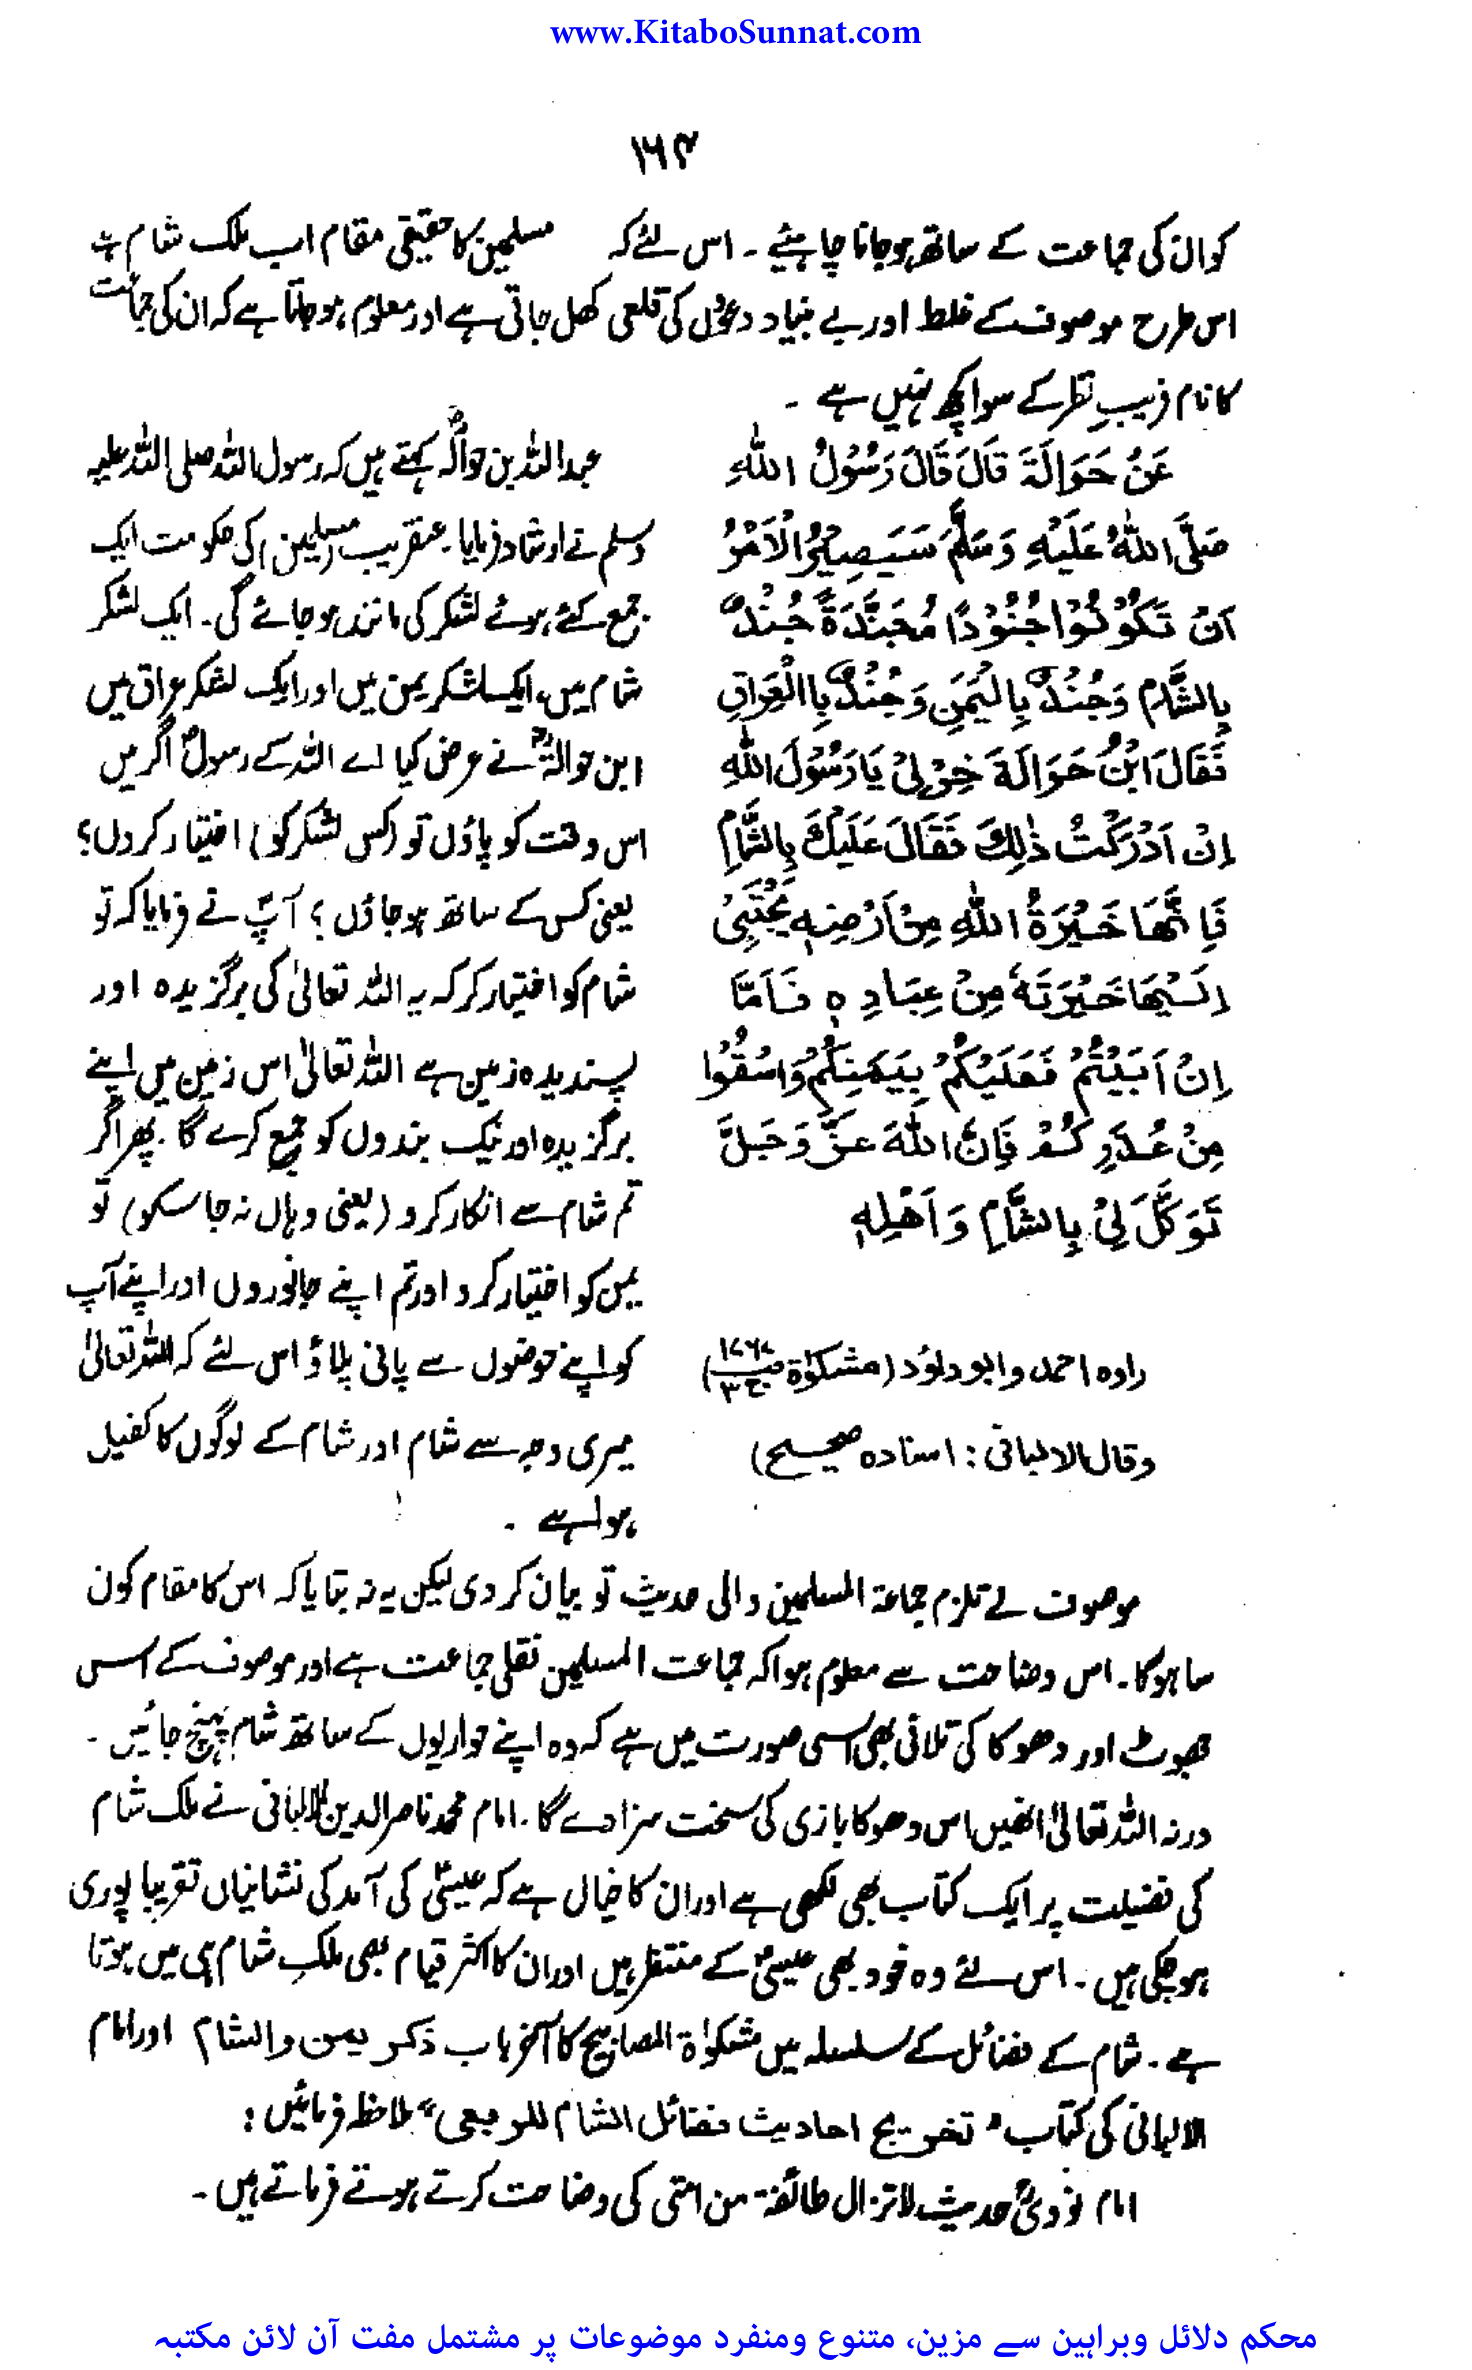 www.KitaboSunnat.com
۱۶۴
کو ان کی جماعت کے ساتھ ہو جانا چاہئیے ۔ اس لئے کہ مسلمین کا حقیقی مقام اب ملک شام ہے
اس طرح موصوف کے غلط اور بے بنیاد دعوٰں کی قلعی کھل جاتی ہے اور معلوم ہو جاتا ہے کہ ان کی جماعت
کا نام فریبِ نظر کے سوا کچھ نہیں ہے ۔
عَنْ حَوَالَةَ قَالَ قَالَ رَسُوْلُ اللّٰهِ
صَلَّى اللّٰهُ عَلَيْهِ وَسَلَّمَ سَيَصِيْرُ الْاَمْرُ
اَنْ تَكُوْنُوْا جُنُوْدًا مُجَنَّدَةً جُنْدٌ
بِالشَّامِ وَجُنْدٌ بِالْيَمَنِ وَجُنْدٌ بِاالْعَرَاقِ
فَقَالَ ابْنُ حَوَالَةَ خِرْلِيْ يَا رَسُوْلَ اللّٰهِ
اِنْ اَدْرَكْتُ ذٰلِكَ فَقَالَ عَلَيْكَ بِالشَّامِ
فَاِنَّهَا خَيْرَةُ اللّٰهِ مِنْ اَرْضِهٖ يَجْتَبِيْ
اِلَيْهَا خَيْرَتَهٗ مِنْ عِبَادِهٖ فَاَمَّا
اِنْ اَبَيْتُمْ فَعَلَيْكُمْ بِيَمَنِكُمْ وَاسْقُوْا
مِنْ غُدَرِكُمْ فَاِنَّ اللّٰهَ عَزَّ وَجَلَّ
تَوَكَّلَ لِيْ بِالشَّامِ وَاَهْلِهٖ
راوه احمد وابو داؤد (مشکوٰة ص۱۷۶۸ ج۳)
وقال الالبانی : اسناده صحیح)
عبداللہ بن حوالہؓ کہتے ہیں کہ رسول اللہ صلی اللہ علیہ
وسلم نے ارشاد فرمایا۔ عنقریب (مسلمین) کی حکومت ایک
جمع کئے ہوئے لشکر کی مانند ہو جائے گی۔ ایک لشکر
شام میں، ایک لشکر یمن میں اور ایک لشکر عراق میں
ابن حوالہؓ نے عرض کیا اے اللہ کے رسولؐ اگر میں
اس وقت کو پاؤں تو (کس لشکر کو) اختیار کروں؟
یعنی کس کے ساتھ ہو جاؤں؟ آپؐ نے فرمایا کہ تو
شام کو اختیار کر کہ یہ اللہ تعالیٰ کی برگزیدہ اور
پسندیدہ زمین ہے اللہ تعالیٰ اس زمین میں اپنے
برگزیدہ اور نیک بندوں کو جمع کرے گا۔ پھر اگر
تم شام سے انکار کرو (یعنی وہاں نہ جا سکو) تو
یمن کو اختیار کرو اور تم اپنے جانوروں اور اپنے آپ
کو اپنے حوضوں سے پانی پلاؤ اس لئے کہ اللہ تعالیٰ
میری وجہ سے شام اور شام کے لوگوں کا کفیل
ہوا ہے ۔
موصوف نے تلزم جماعۃ المسلمین والی حدیث تو بیان کر دی لیکن یہ نہ بتایا کہ اس کا مقام کون
سا ہوگا۔ اس وضاحت سے معلوم ہوا کہ جماعت المسلمین نقلی جماعت ہے اور موصوف کے اس
جھوٹ اور دھوکا کی تلافی بھی اسی صورت میں ہے کہ وہ اپنے حواریوں کے ساتھ شام پہنچ جائیں۔
ورنہ اللہ تعالیٰ انھیں اس دھوکا بازی کی سخت سزا دے گا۔ امام محمد ناصر الدین الالبانی نے ملک شام
کی فضیلت پر ایک کتاب بھی لکھی ہے اور ان کا خیال ہے کہ عیسیٰؑ کی آمد کی نشانیاں تقریبا پوری
ہوچکی ہیں۔ اس لئے وہ خود بھی عیسیٰؑ کے منتظر ہیں اور ان کا اکثر قیام بھی ملکِ شام ہی میں ہوتا
ہے۔ شام کے فضائل کے سلسلہ میں مشکوٰۃ المصابیح کا آخر باب ذکر یمن والشام اور امام
الالبانی کی کتاب "تخریج احادیث فضائل الشام للربعی" ملاحظہ فرمائیں:
امام نووی حدیث لاتزال طائفة من امتی کی وضاحت کرتے ہوتے فرماتے ہیں۔
محکم دلائل وبراہین سے مزین، متنوع ومنفرد موضوعات پر مشتمل مفت آن لائن مکتبہ